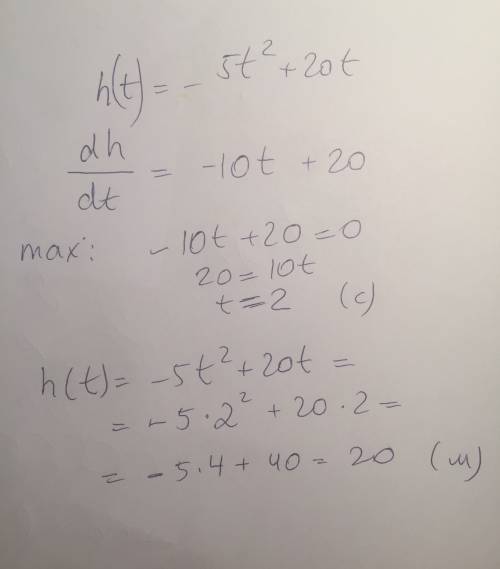 h(t) = - 5t² + 20t
dh/dt = -10t + 20
max: - 10t + 20 = 0
20 = 10t
t = 2 (с)
h(t) = -5t² + 20t =
= - 5 · 2² + 20 · 2 =
= - 5 · 4 + 40 = 20 (м)